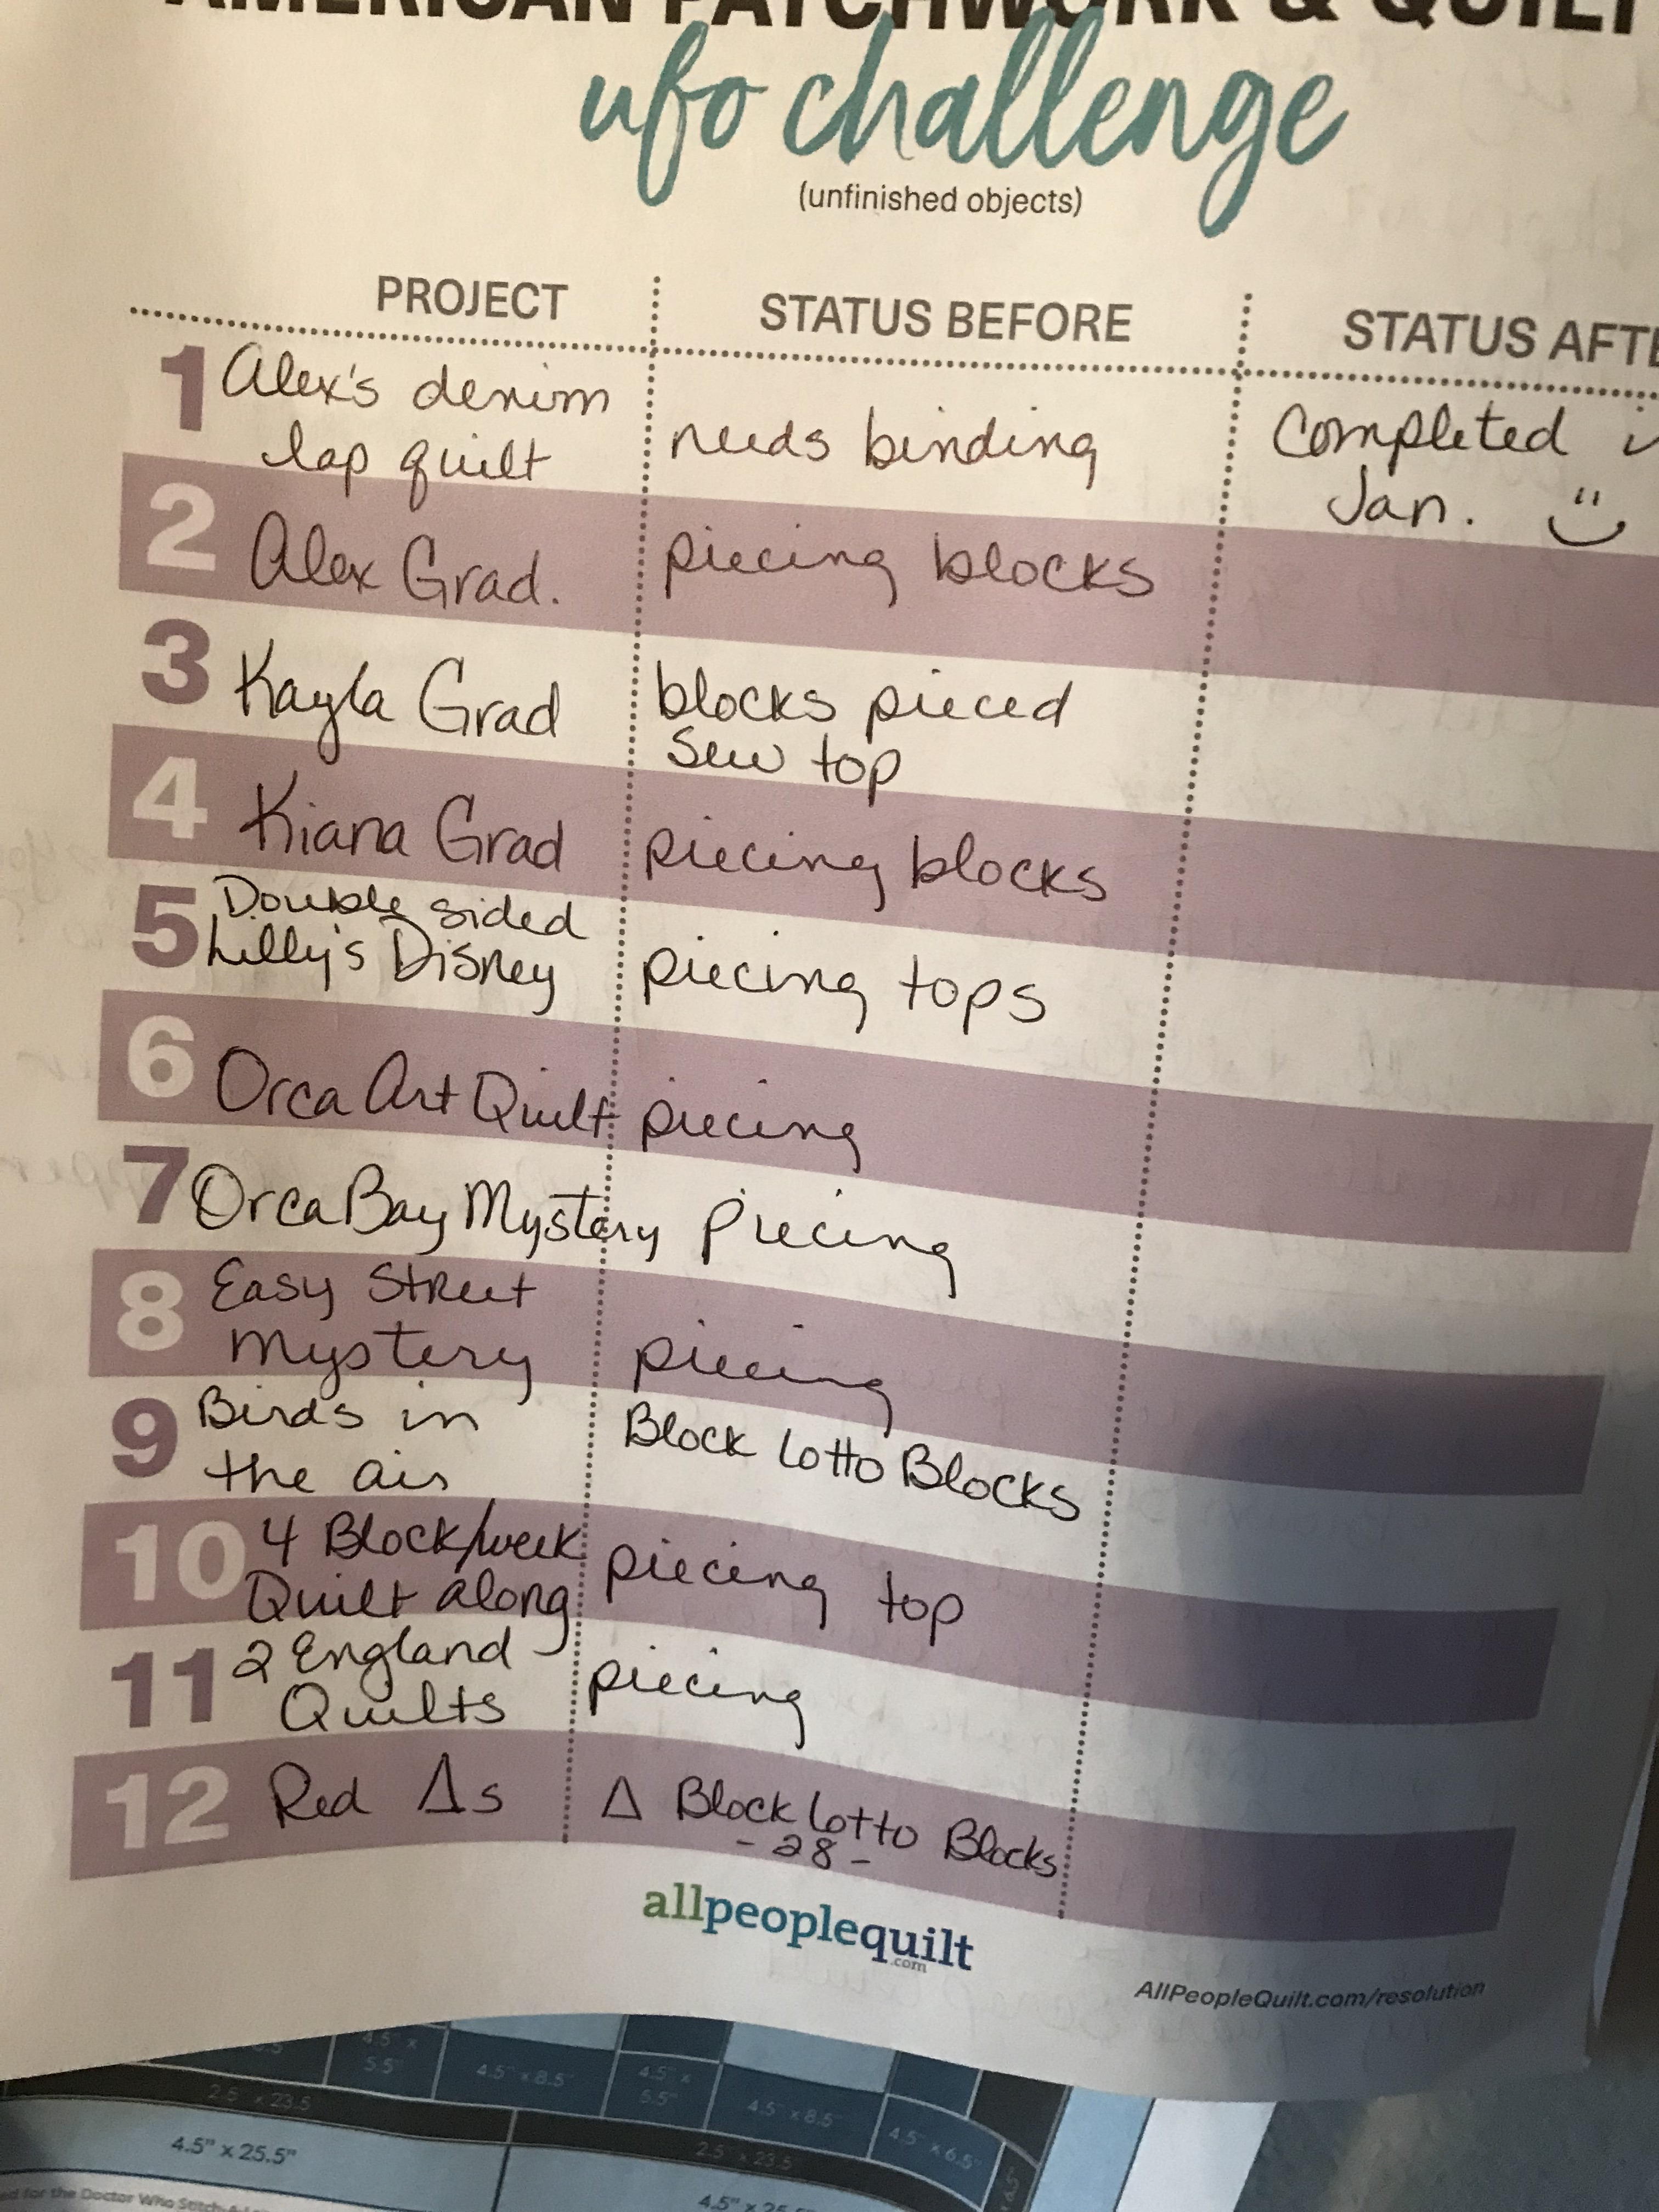 AMERICAN PATCHWORK & QUILT
ufo challenge
(unfinished objects)
PROJECT STATUS BEFORE STATUS AFTE
1 Alex's denim lap quilt needs binding Completed ✓ Jan. ⍤
2 Alex Grad. piecing blocks
3 Kayla Grad blocks pieced
sew top
4 Kiana Grad piecing blocks
5 Double sided
Lilly's Disney piecing tops
6 Orca Art Quilt piecing
7 Orca Bay Mystery Piecing
8 Easy Street
Mystery piecing
9 Birds in
the air Block Lotto Blocks
10 4 Block/week
Quilt along piecing top
11 2 England
Quilts piecing
12 Red Δs Δ Block Lotto Blocks
- 28 -
allpeoplequilt
.com
AllPeopleQuilt.com/resolution
4.5" x
5.5"
4.5" x 8.5"
4.5" x
5.5"
4.5" x 8.5"
4.5" x 6.5"
2.5" x 23.5
2.5" x 23.5"
4.5" x 25.5"
for the Doctor Who Stitch